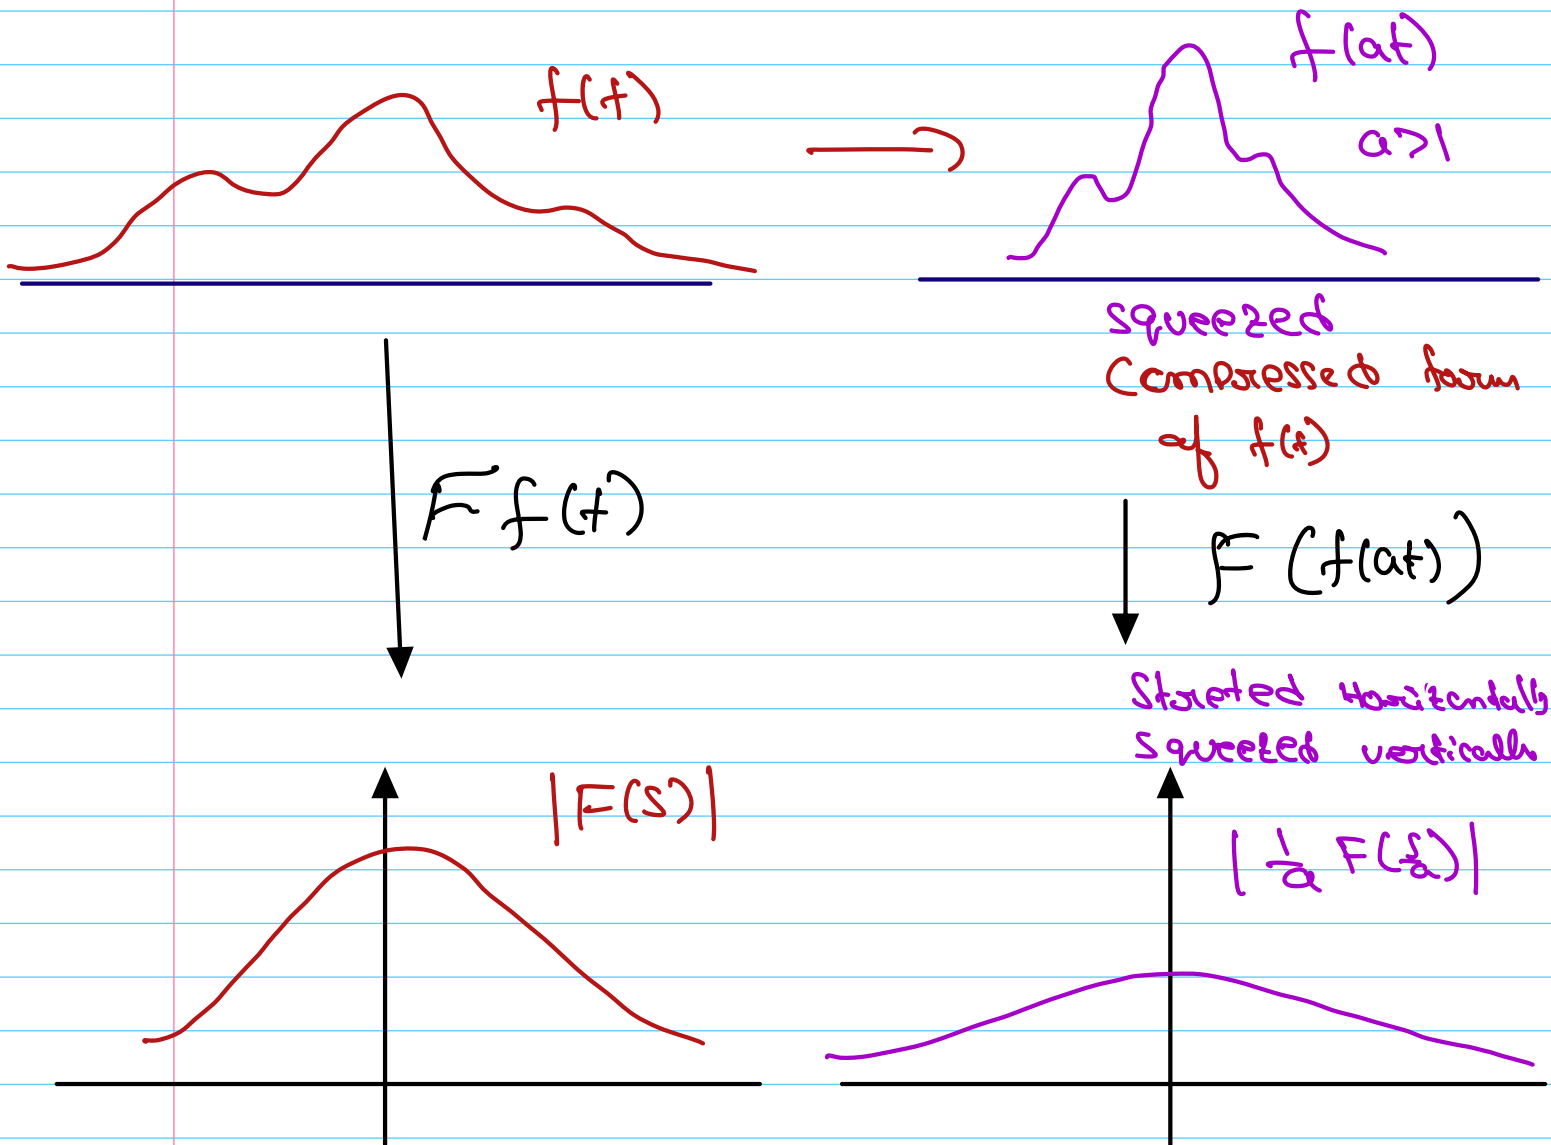 f(t)
f(at)
a>1
squeezed
Compressed form
of f(t)
F f(t)
F (f(at))
Streted Horizontally
Squeezed vertically
|F(s)|
|1/a F(s/a)|